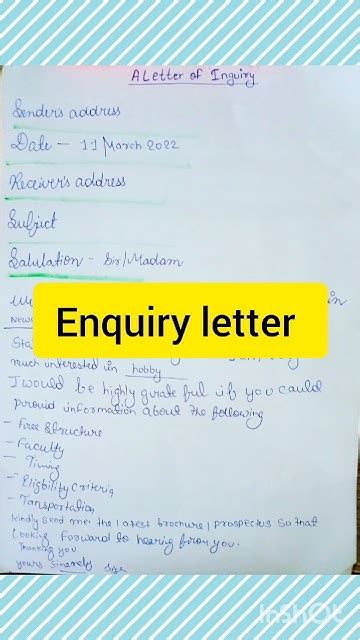 A Letter of Inquiry
Sender's address
Date - 11 March 2022
Receiver's address
Subject
Salutation - Sir/Madam
in
Enquiry letter
much interested in hobby
I would be highly grateful if you could
provid information about the following
- Free Structure
- Faculty
- Timing
- Eligbility Criteria
- Tansportation
kindly send me the latest brochure/prospectus so that
Looking forward to hearing from you.
Thanking you
yours Sincerely
InShOt